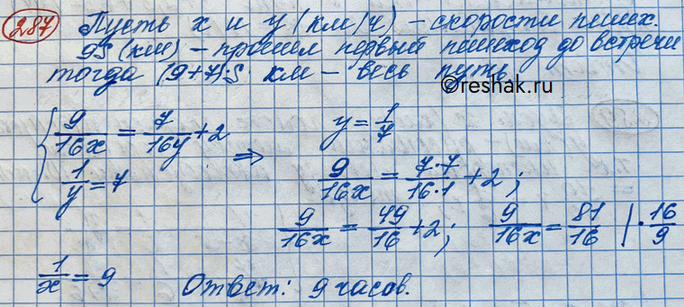 287 Пусть x и y (км/ч) – скорости пешех.
9S (км) – прошел первый пешеход до встречи
тогда (9+7)·S км – весь путь
©reshak.ru
{ 9/16x = 7/16y + 2
1/y = 7
⇒ y = 1/7
9/16x = 7·7/16·1 + 2;
9/16x = 49/16 + 2; 9/16x = 81/16 | · 16/9
1/x = 9 Ответ: 9 часов.